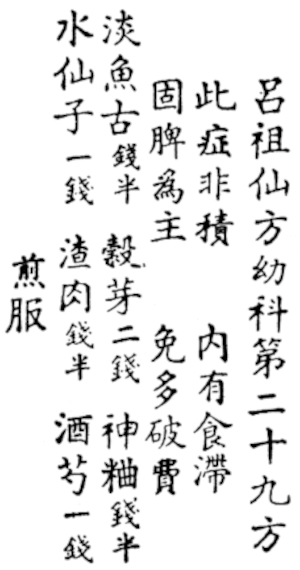 呂祖仙方幼科第二十九方
此症非積 内有食滯
固脾為主 免多破費
淡魚古錢半 穀芽二錢 神粬錢半
水仙子一錢 渣肉錢半 酒芍一錢
煎服